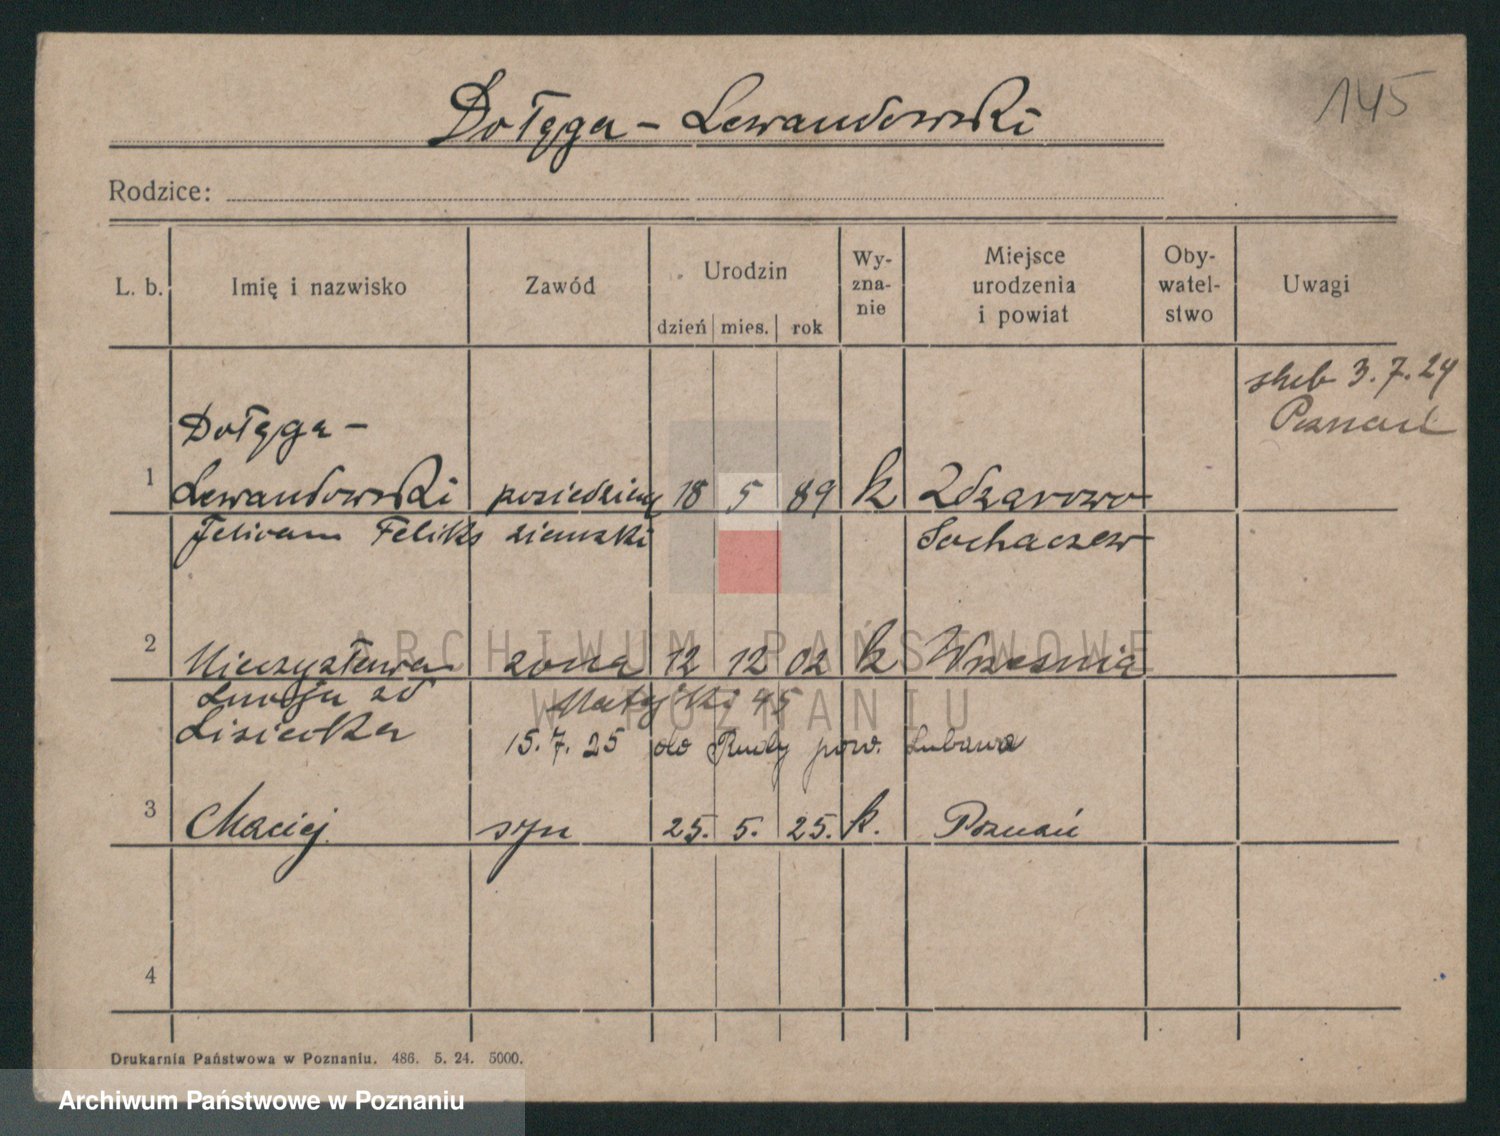 Dołęga - Lewandowski
145
Rodzice:
L. b.
Imię i nazwisko
Zawód
Urodzin
dzień
mies.
rok
Wy-
zna-
nie
Miejsce
urodzenia
i powiat
Oby-
watel-
stwo
Uwagi
3.7.24
Poznań
Dołęga -
1 Lewandowski 18 5 89 k
Feliks ziemski Sochaczew
2 Mieczysława żona 12 12 02 k Września
Lisiecka
15.7.25 do Rudy pow. Lubawa
3 Maciej syn 25. 5. 25. k. Poznań
4
ARCHIWUM PAŃSTWOWE
W POZNANIU
Drukarnia Państwowa w Poznaniu. 486. 5. 24. 5000.
Archiwum Państwowe w Poznaniu